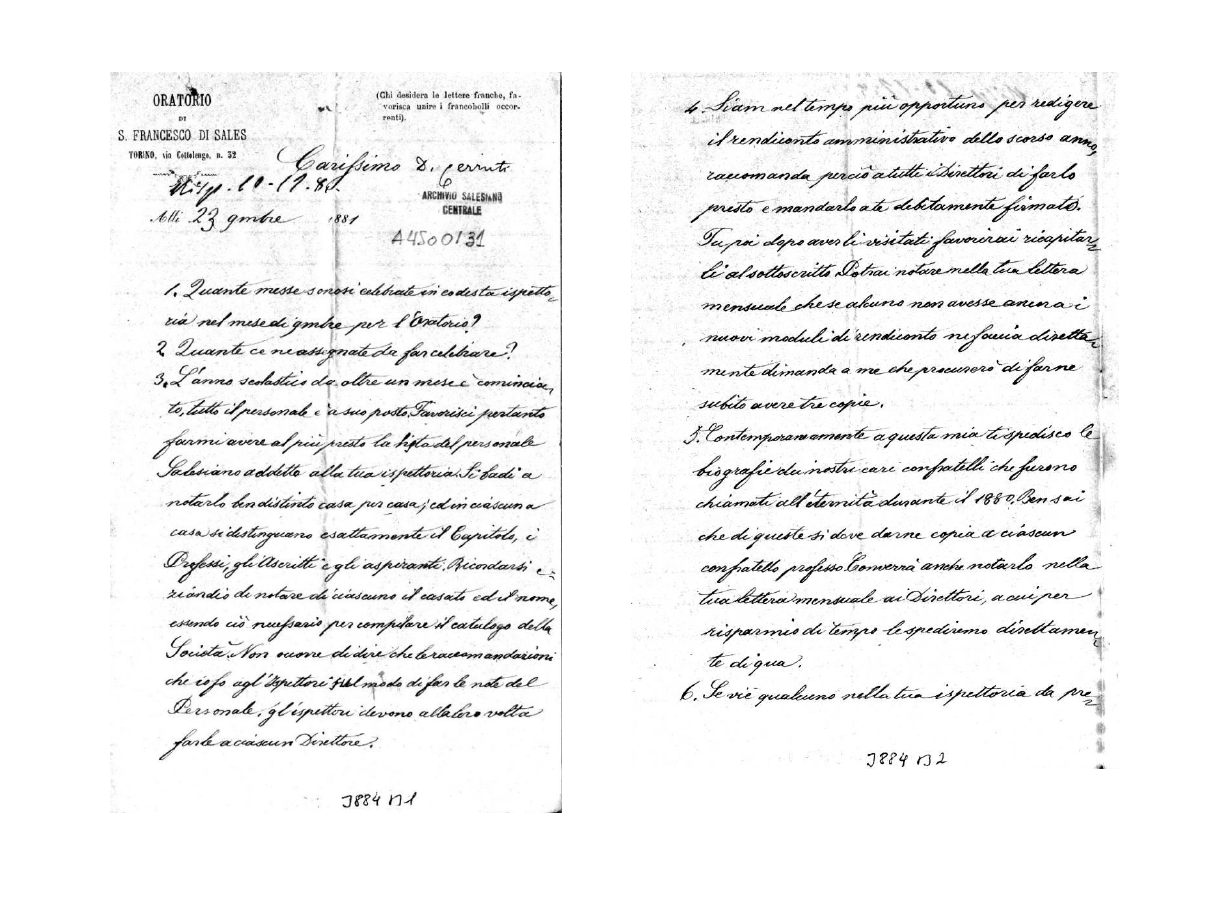 ORATORIO
DI
S. FRANCESCO DI SALES
TORINO, via Cottolengo, n. 32
(Chi desidera le lettere franche, fa-
vorisca unire i francobolli occor-
renti).
Carissimo D. Cerruti
Risp. 10-12-81.
ARCHIVIO SALESIANO
CENTRALE
Alli 23 9mbre 1881
A4500131
1. Quante messe sonosi celebrate in codesta ispetto-
ria nel mese di 9mbre per l'Oratorio?
2 Quante ce ne assegnate da far celebrare?
3. L'anno scolastico da oltre un mese è comincia-
to, tutto il personale è a suo posto. Favorisci pertanto
farmi avere al più presto la lista del personale
Salesiano addetto alla tua ispettoria. Si badi a
notarlo ben distinto casa per casa; ed in ciascuna
casa si distinguano esattamente il Capitolo, i
Professi, gli Ascritti e gli aspiranti. Ricordarsi e-
ziandio di notare di ciascuno il casato ed il nome,
essendo ciò necessario per compilare il catalogo della
Società. Non occorre di dire che le raccomandazioni
che io fo agl'Ispettori sul modo di far le note del
Personale, gl'ispettori devono alla loro volta
farle a ciascun Direttore.
J884 B1
4. Siam nel tempo più opportuno per redigere
il rendiconto amministrativo dello scorso anno,
raccomanda perciò a tutti i Direttori di farlo
presto e mandarlo a te debitamente firmato.
Tu poi dopo averli visitati favorirai ricapitar-
li al sottoscritto. Potrai notare nella tua lettera
mensuale che se alcuno non avesse ancora i
nuovi moduli di rendiconto ne faccia diretta-
mente dimanda a me che procurerò di farne
subito avere tre copie.
5. Contemporaneamente a questa mia ti spedisco le
biografie dei nostri cari confratelli che furono
chiamati all'eternità durante il 1880. Ben sai
che di queste si deve darne copia a ciascun
confratello professo. Converrà anche notarlo nella
tua lettera mensuale ai Direttori, a cui per
risparmio di tempo le spediremo direttamen-
te di qua.
6. Se vi è qualcuno nella tua ispettoria da pre-
J884 B2